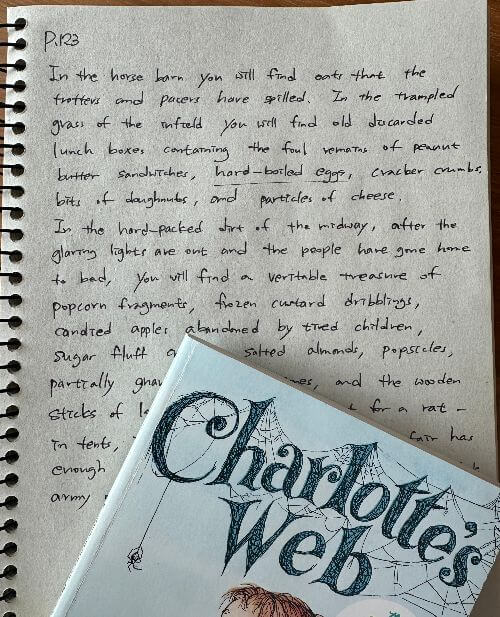 P.123
In the horse barn you will find oats that the
trotters and pacers have spilled. In the trampled
grass of the infield you will find old discarded
lunch boxes containing the foul remains of peanut
butter sandwiches, hard-boiled eggs, cracker crumbs,
bits of doughnuts, and particles of cheese.
In the hard-packed dirt of the midway, after the
glaring lights are out and the people have gone home
to bed, you will find a veritable treasure of
popcorn fragments, frozen custard dribblings,
candied apples abandoned by tired children,
sugar fluff salted almonds, popsicles,
partially and the wooden
sticks of for a rat -
in tents, fair has
enough
army
Charlotte's
Web